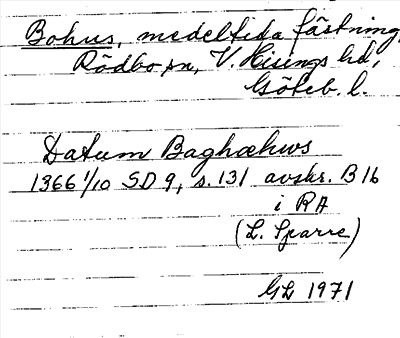 Bohus, medeltida fästning,
Rödbo sn, V. Hisings hd,
Göteb. l.
Datum Baghæhws
1366 1/10 SD 9, s. 131 avskr. B 16
i RA
(L. Sparre)
GL 1971